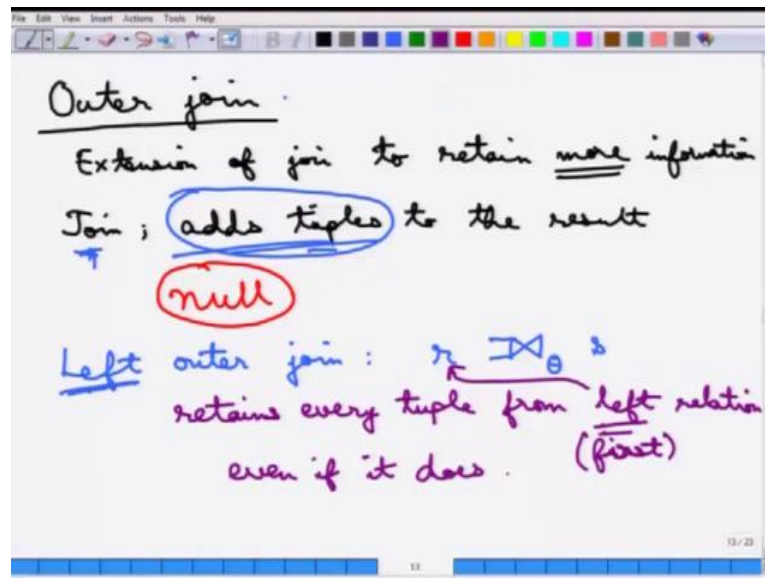 File Edit View Insert Actions Tools Help
Outer join
Extension of join to retain more information
Join ; adds tuples to the result
null
Left outer join : r ⟕θ s
retains every tuple from left relation
(first)
even if it does .
13 / 23
13